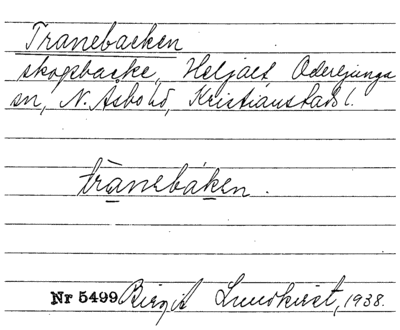 Tranebacken
skogsbacke, Heljalt Oderljunga
sn, N. Åsbo hd, Kristianstads l.
trànebáken.
Nr 5499 Birgit Lundkvist, 1938.